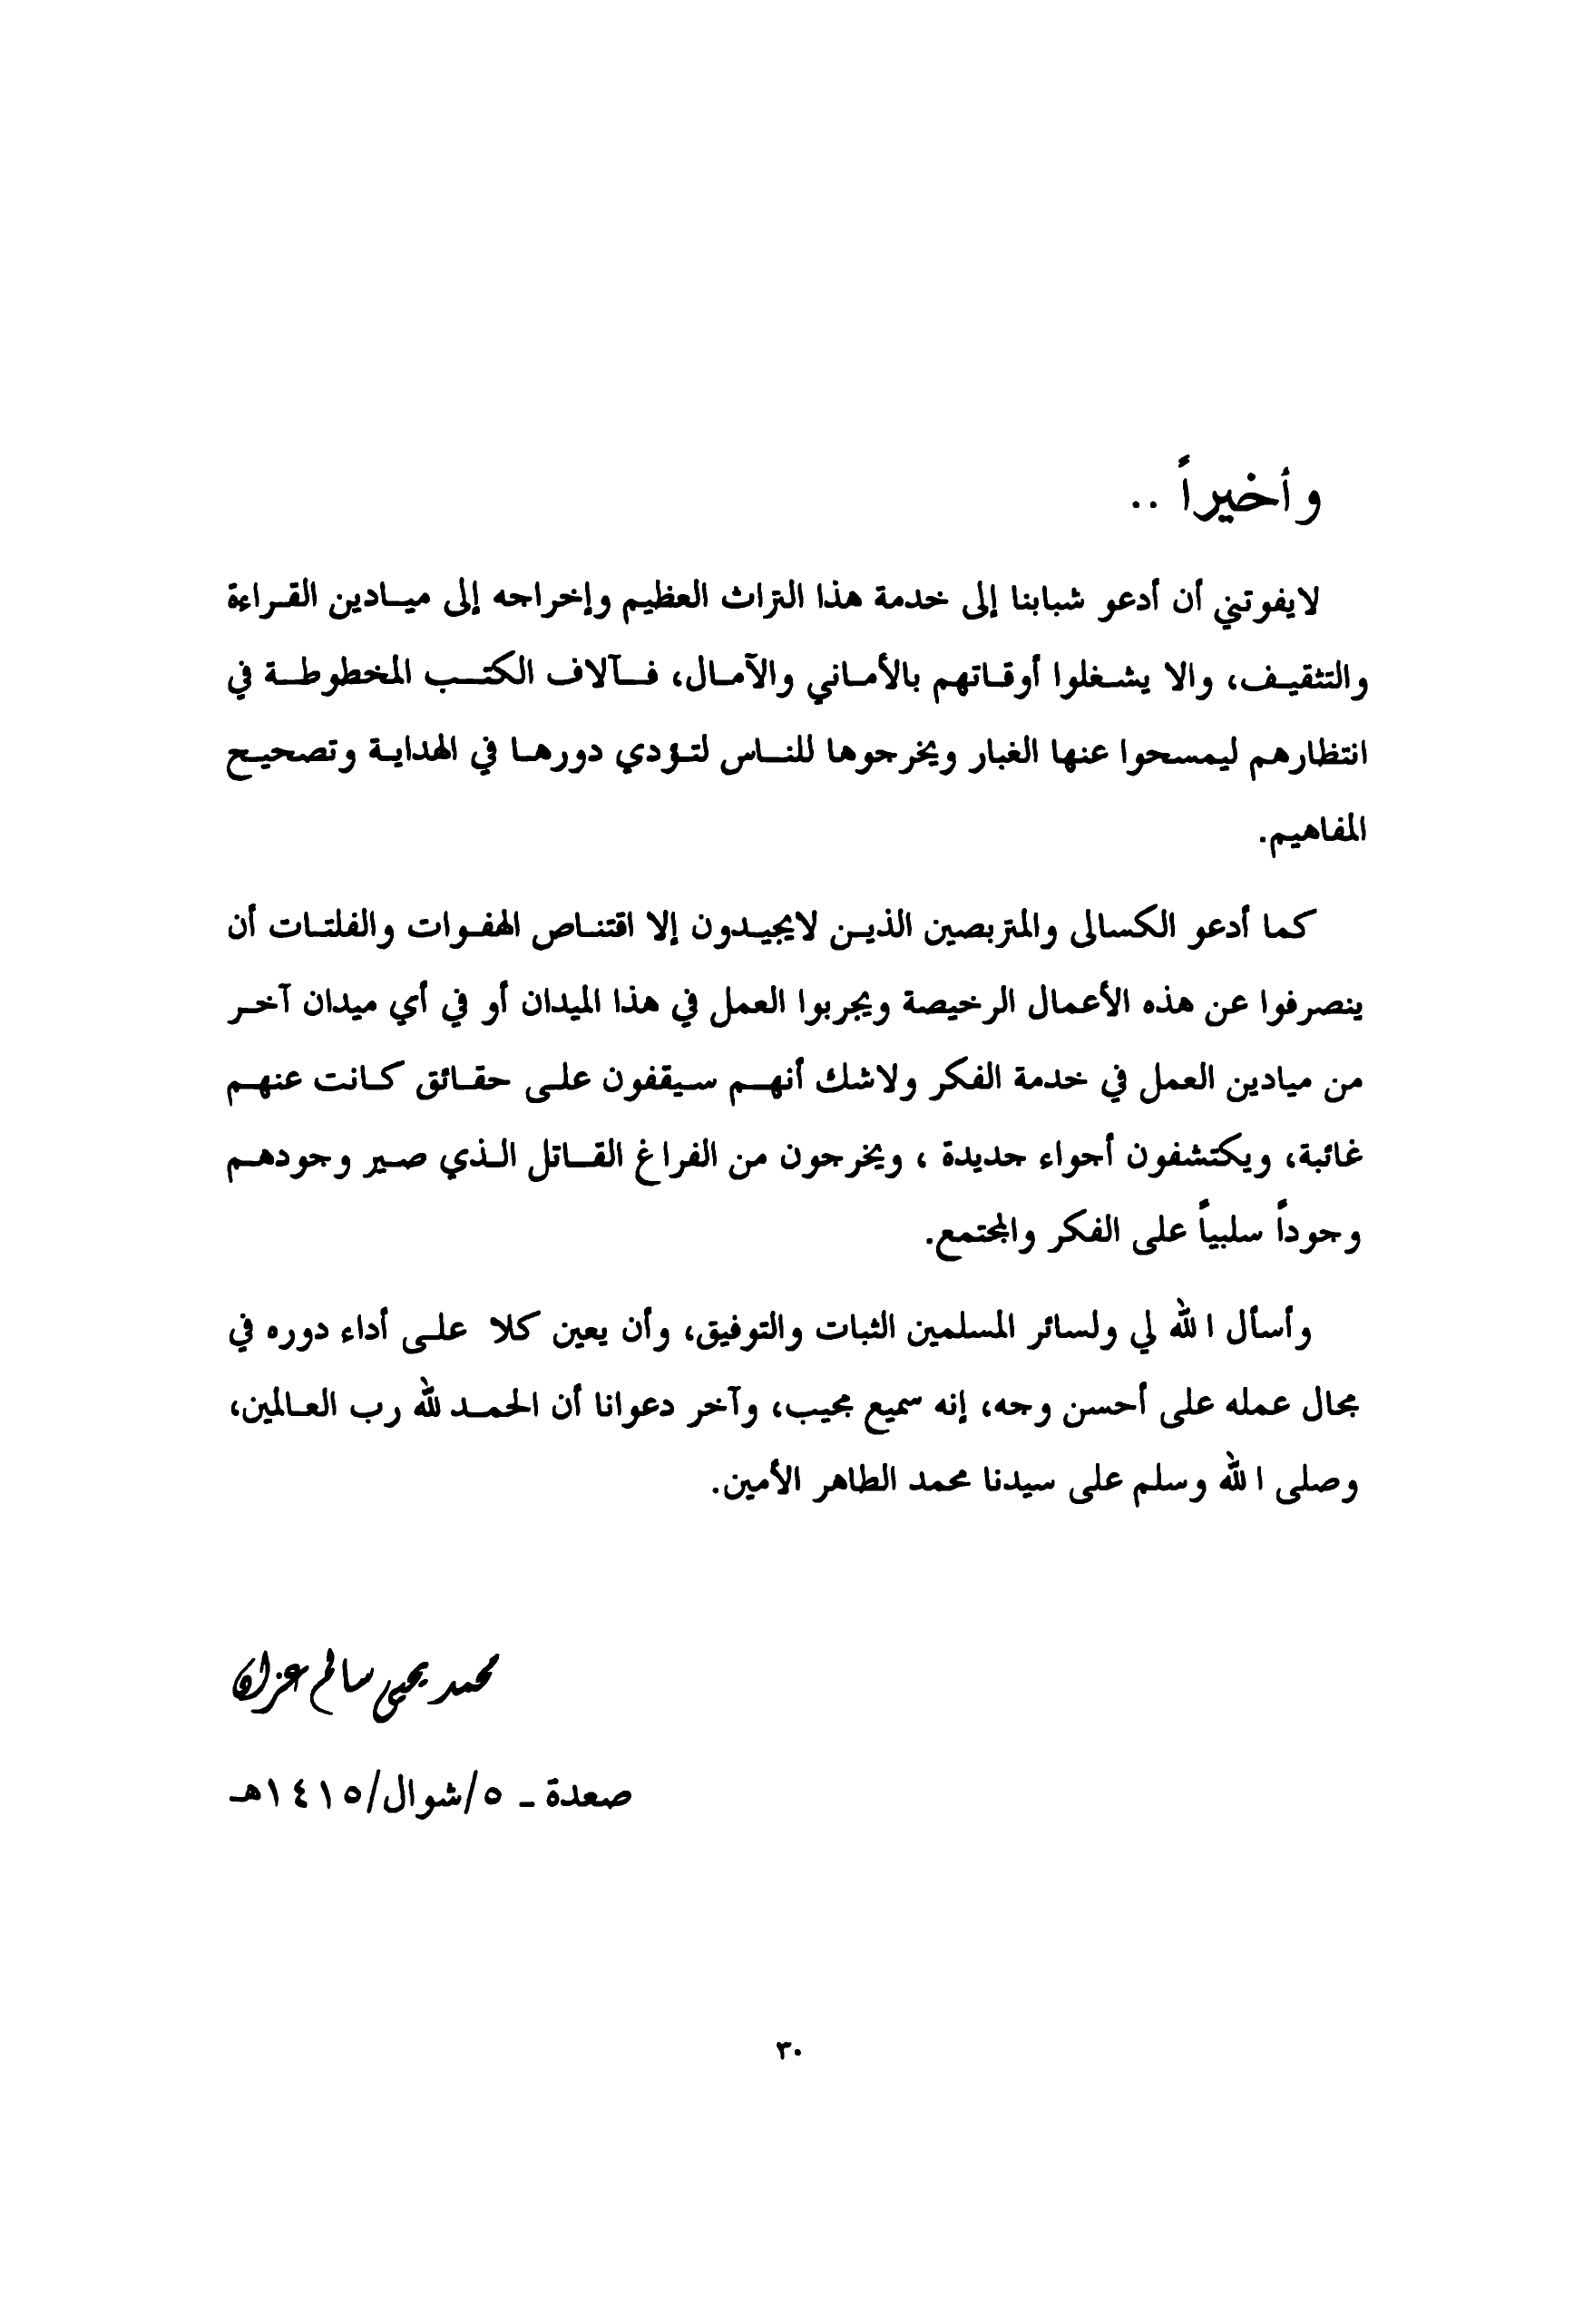 وأخيراً ..
لايفوتني أن أدعو شبابنا إلى خدمة هذا التراث العظيم وإخراجه إلى ميادين القراءة
والتثقيف، والا يشغلوا أوقاتهم بالأماني والآمال، فآلاف الكتب المخطوطة في
انتظارهم ليمسحوا عنها الغبار ويخرجوها للناس لتؤدي دورها في الهداية وتصحيح
المفاهيم.
كما أدعو الكسالى والمتربصين الذين لايجيدون إلا اقتناص الهفوات والفلتات أن
ينصرفوا عن هذه الأعمال الرخيصة ويجربوا العمل في هذا الميدان أو في أي ميدان آخر
من ميادين العمل في خدمة الفكر ولاشك أنهم سيقفون على حقائق كانت عنهم
غائبة، ويكتشفون أجواء جديدة ، ويخرجون من الفراغ القاتل الذي صير وجودهم
وجوداً سلبياً على الفكر والمجتمع.
وأسأل الله لي ولسائر المسلمين الثبات والتوفيق، وأن يعين كلا على أداء دوره في
مجال عمله على أحسن وجه، إنه سميع مجيب، وآخر دعوانا أن الحمد لله رب العالمين،
وصلى الله وسلم على سيدنا محمد الطاهر الأمين.
محمد يحيى سالم عزان
صعدة ـ ٥/شوال/١٤١٥هـ
٣٠